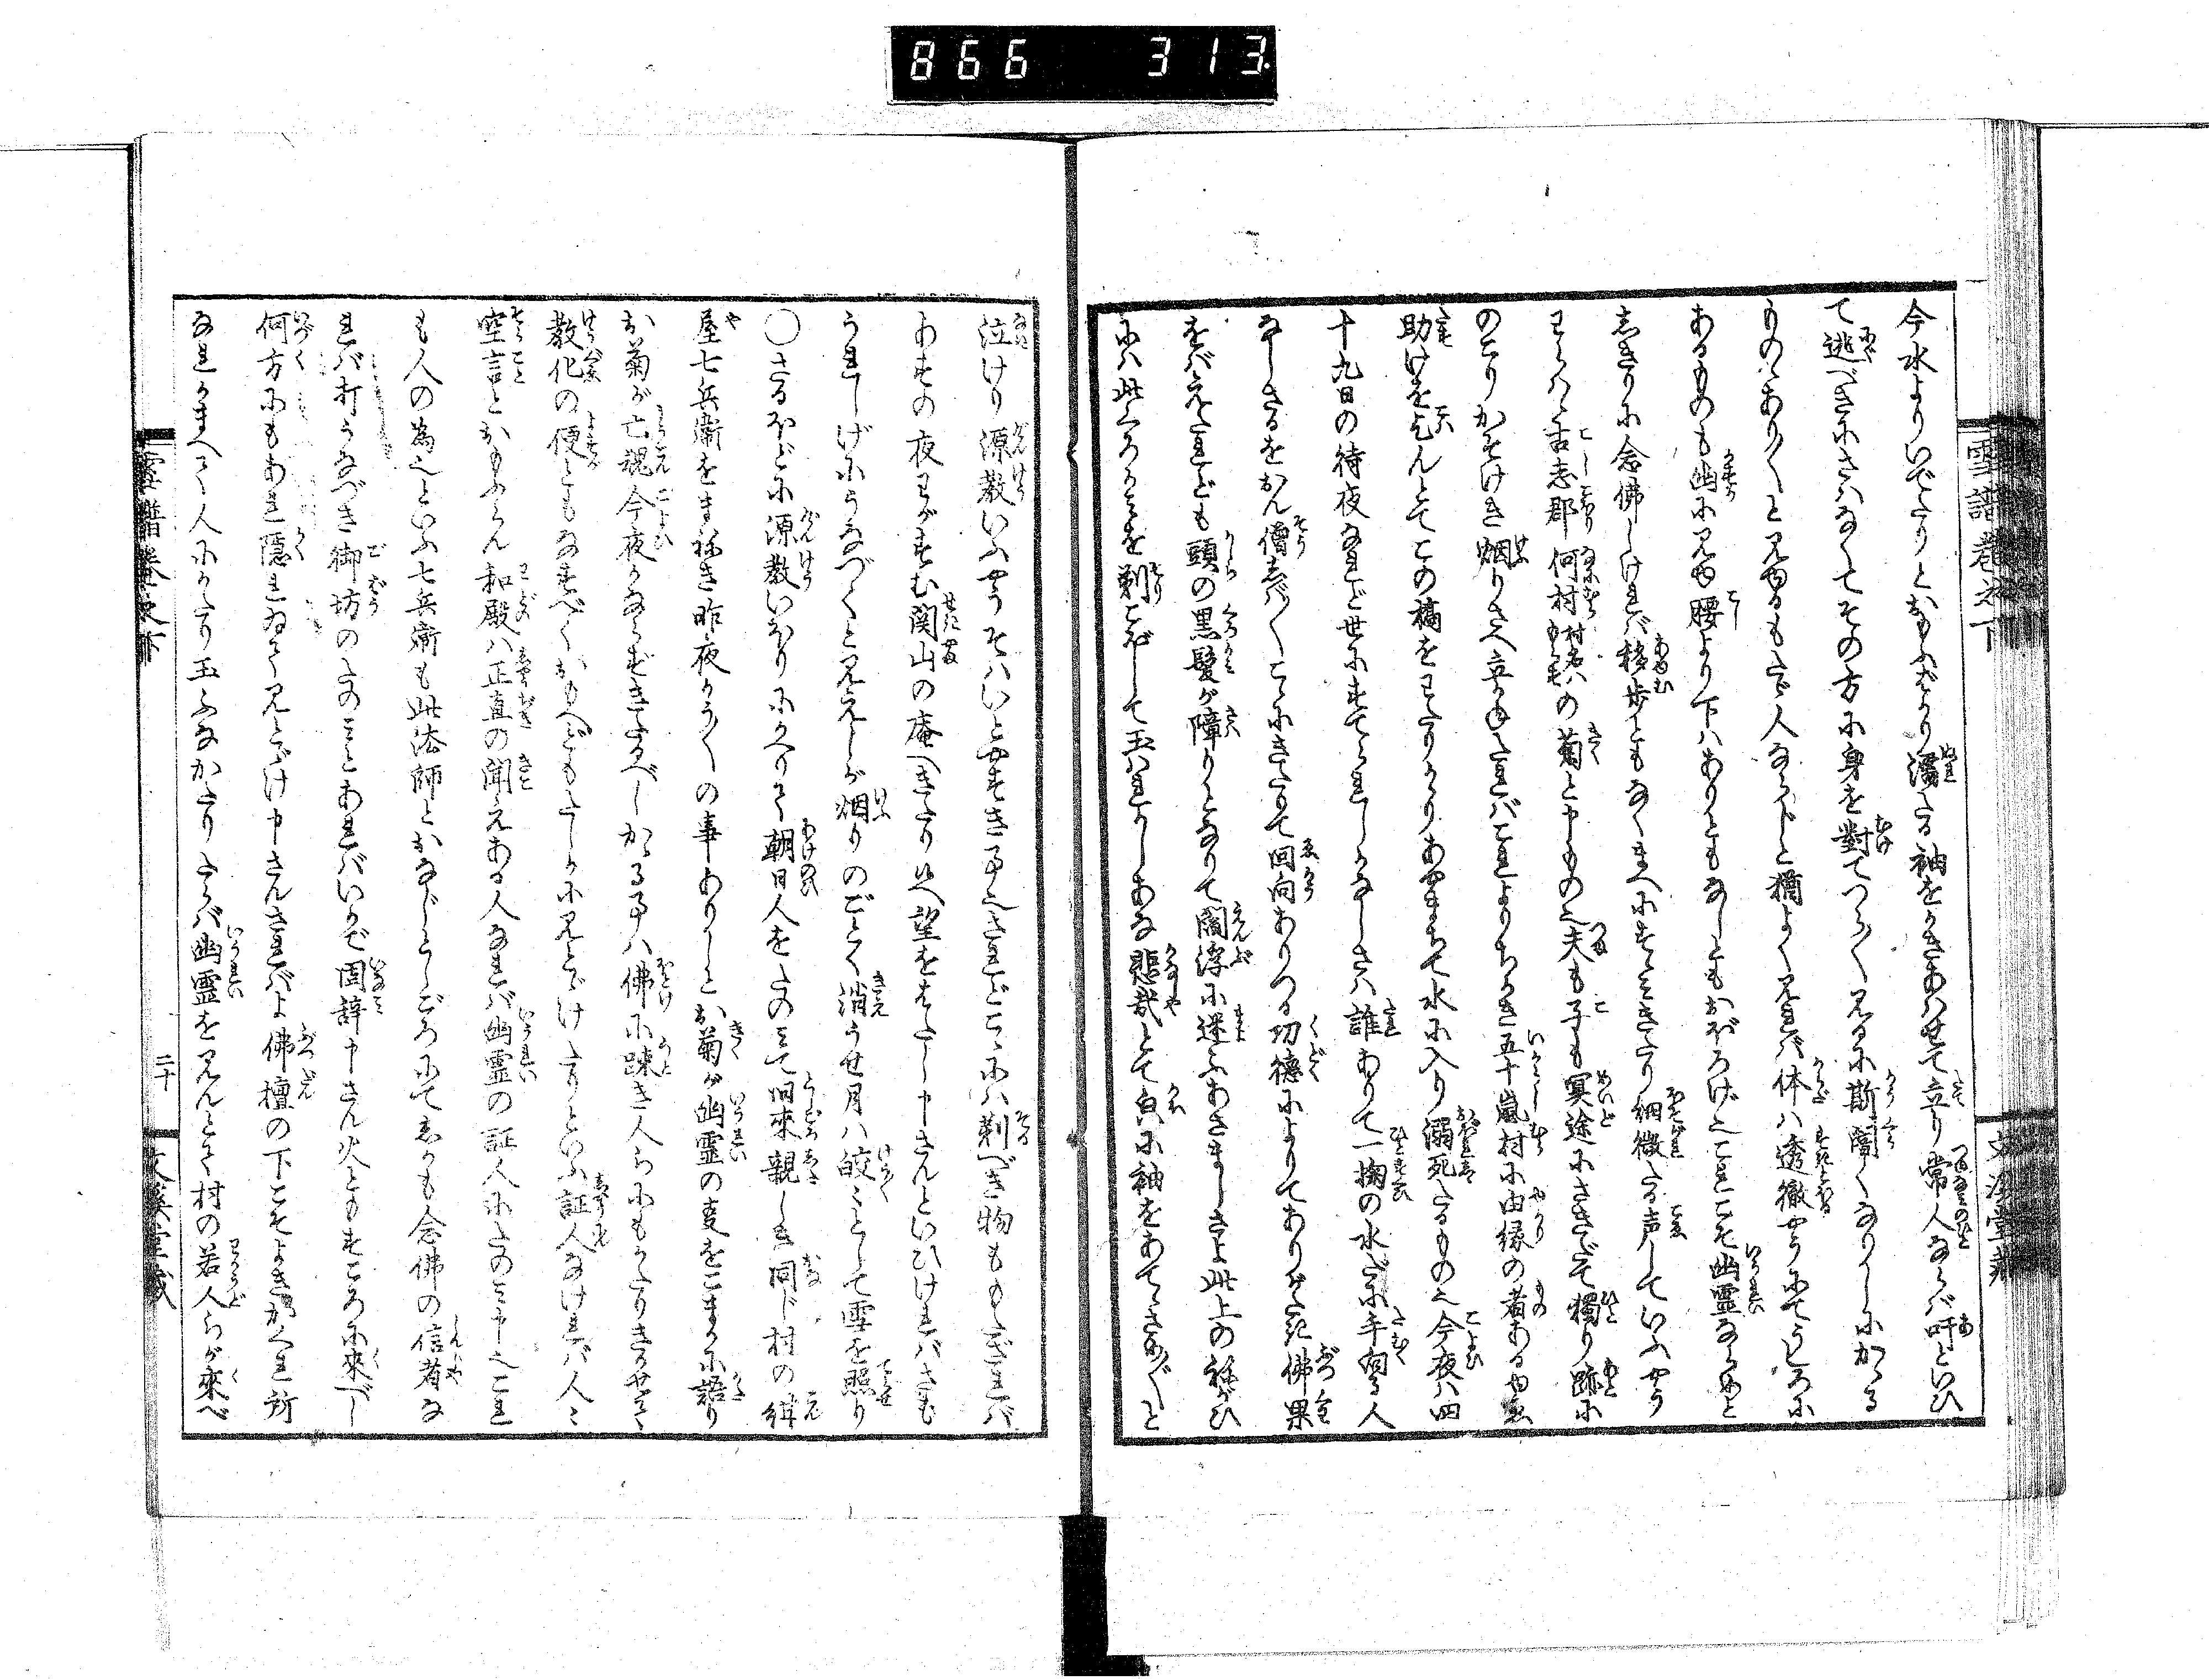 866 313
雪譜巻之下
文渓堂蔵
今水よりいでたりとおもふばかり濡たる袖をかきあはせて立り常人ならば吁といひ
て逃べきにさはなくてその方に身を対てつら〱見るに斯闇くなりしにかゝる
ものゝあり〱と見ゆるもたゞ人ならじと猶よく見れば体は透徹やうにてうしろに
あるものも幽に見ゆ腰より下はありともなしともおぼろげ也これこそ幽霊ならめと
しきりに念佛しければ移歩ともなくまへにすゝみきたり細微たる声していふやう
わらは古志郡何村村名はもらすの菊と申もの也夫も子も冥途にさきだて独り跡に
のこりかそけき烟りさへ立かねたればこれよりちかき五十嵐村に由縁の者あるゆゑ
助けを乞んとてこの橋をわたりかゝりあやまちて水に入り溺死たるもの也今夜は四
十九日の待夜なれど世にすてられしかなしさは誰ありて一掬の水だに手向る人
なしさるをおん僧しば〱こゝにきたりて回向ありつる功徳によりてありがたき佛果
をばえたれども頭の黒髪が障りとなりて閻浮に迷ふあさましさよ此上の祢がひ
には此くろかみを剃こぼして玉はれかしあな悲哉とて㒵に袖をあてゝさめ〲と
泣けり源教いふやうそはいとやすき事也されどこゝには剃べき物ももたざれば
あすの夜わがすむ関山の庵へきたり候へ望をはたし申さんといひければさも
うれしげにうなづくと見えしが烟りのごとく消うせ月は皎々として雪を照り
〇さるほどに源教いほりにかへりて朝日人をたのみて旧来親しき同じ村の紺
屋七兵衛をまねき昨夜かう〱の事ありしとお菊が幽霊の㕝をこまかに語り
お菊が亡魂今夜かならずきたるべしかゝる事は佛に疎き人らにもかたりきかせて
教化の便ともなすべくおもへどもたしかに見とゞけたりといふ証人なければ人々
空言とおもふらん和殿は正直の聞えある人なれば幽霊の証人にたのみ申也これ
も人の為也といふ七兵衛も此法師とおなじこゝろにてしかも念佛の信者な
れば打うなづき御坊のたのみとあればいかで固辞申さん火ともすころに来べし
何方にもあれ隠れゐて見とゞけ申さんさればよ佛壇の下こそよきかくれ所
なれかまへて人にかたり玉ふなかたりたらば幽霊を見んとて村の若人らが来べ
雪譜巻之下
二十
文渓堂蔵